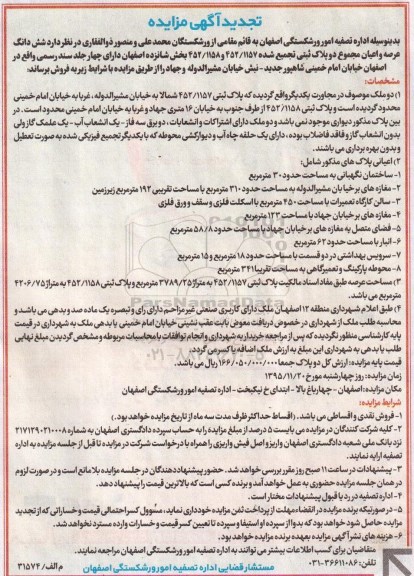 تجدید آگهی مزایده
بدینوسیله اداره تصفیه امور ورشکستگی اصفهان به قائم مقامی از ورشکستگان محمد علی و منصور ذوالفقاری در نظر دارد شش دانگ
عرصه و اعیان مجموع دو پلاک ثبتی تجمیع شده ۴۵۲/۱۱۵۷ و ۴۵۲/۱۱۵۸ بخش شانزده اصفهان دارای چهار جلد سند رسمی واقع در
اصفهان خیابان امام خمینی شاهپور جدید - نبش خیابان مشیرالدوله و جهاد را از طریق مزایده با شرایط زیر به فروش برساند:
مشخصات:
۱) دو ملک موصوف در مجاورت یکدیگر واقع گردیده که پلاک ثبتی ۴۵۲/۱۱۵۷ شمالا به خیابان مشیرالدوله، غربا به خیابان امام خمینی
محدود گردیده است و پلاک ثبتی ۴۵۲/۱۱۵۸ از طرف جنوب به خیابان ۱۶ متری جهاد و غربا به خیابان امام خمینی محدود است. در
بین پلاک مذکور دیواری موجود نمی باشد و دو ملک دارای اشتراکات و انشعابات، دو برق سه فاز - یک انشعاب آب - یک علمک گاز ولی
بدون انشعاب گاز و فاقد فاضلاب بوده، دارای یک حلقه چاه آب و دیوارکشی محوطه که با یکدیگر تجمیع فیزیکی شده به صورت تعطیل
و بدون بهره برداری می باشند.
۲) اعیانی پلاک های مذکور شامل:
۱- ساختمان نگهبانی به مساحت حدود ۳۰ مترمربع
۲- مغازه های بر خیابان مشیرالدوله به مساحت حدود ۳۱۰ مترمربع با مساحت تقریبی ۱۹۲ مترمربع زیرزمین
۳- سالن کارگاه تعمیرات با مساحت ۴۵۰ مترمربع با اسکلت فلزی و سقف و ورق فلزی
۴- مغازه های بر خیابان جهاد با مساحت ۱۲۳ مترمربع
۵- فضای متصل به مغازه های بر خیابان جهاد با مساحت حدود ۵۸/۸ مترمربع
۶- انبار با مساحت حدود ۶۲ مترمربع
۷- سرویس بهداشتی در دو قسمت با مساحت حدود ۱۸ مترمربع و ۱۵ مترمربع
۸- محوطه پارکینگ و تعمیرگاهی به مساحت تقریبا ۳۴۱ مترمربع
۳) مساحت عرصه طبق مفاد اسناد مالکیت پلاک ثبتی ۴۵۲/۱۱۵۷ به متراژ ۳۷۸۹/۲۵ مترمربع و پلاک ثبتی ۴۵۲/۱۱۵۸ به متراژ ۴۲۰۶/۷۵
مترمربع می باشد.
۴) طبق اعلام شهرداری منطقه ۱۲ اصفهان ملک دارای کاربری صنعتی غیرمزاحم دارای رای و تبصره یک ماده صد و بدهی می باشد و
محاسبه طلب ملک از شهرداری در خصوص دریافت معوض بابت عقب نشینی خیابان امام خمینی یا بدهی ملک به شهرداری در قیمت
پایه کارشناسی منظور نگردیده که پس از مراجعه خریدار به شهرداری و انجام توافقات یا محاسبات مربوطه و مشخص گردیدن مبلغ نهایی
طلب یا بدهی به شهرداری این مبلغ به ارزش ملک اضافه یا کسر می گردد.
قیمت پایه مزایده: ارزش کل دو پلاک جمعا ۱۶۶/۰۵۰/۰۰۰/۰۰۰ ریال می باشد.
زمان مزایده: روز چهارشنبه مورخ ۱۳۹۵/۱۱/۲۰
مکان مزایده: اصفهان - چهارباغ بالا - ابتدای خ نیکبخت - اداره تصفیه امور ورشکستگی اصفهان
شرایط مزایده:
۱- فروش نقدی و اقساطی می باشد. (اقساط حداکثر ظرف مدت سه ماه از تاریخ مزایده خواهد بود.)
۲- کلیه شرکت کنندگان در مزایده می بایست ۵ درصد از مبلغ مزایده را به حساب سپرده دادگستری اصفهان به شماره ۲۱۷۱۲۹۰۲۱۰۰۰۸
نزد بانک ملی شعبه دادگستری اصفهان واریز و اصل فیش واریزی را همراه با درخواست شرکت در مزایده تا قبل از جلسه مزایده به اداره
تصفیه ارایه نمایند.
۳- پیشنهادات در ساعت ۱۱ صبح روز مقرر بررسی خواهد شد. حضور پیشنهاددهندگان در جلسه مزایده بلامانع است و در صورت لزوم
در همان جلسه مزایده حضوری به عمل خواهد آمد و برنده کسی است که بالاترین قیمت را پیشنهاد دهد.
۴- اداره تصفیه در رد یا قبول پیشنهادات مختار است.
۵- در صورتیکه برنده مزایده در انقضاء مهلت از پرداخت ثمن مزایده خودداری نماید، مسوول کسر احتمالی قیمت و خساراتی که از تجدید
مزایده حاصل شود خواهد بود که بدوا از سپرده او استیفا و سپرده تا تعیین کسر قیمت و خسارات وارده مسترد نخواهد شد.
۶- هزینه های نشر آگهی مزایده بعهده برنده مزایده خواهد بود.
متقاضیان برای کسب اطلاعات بیشتر می توانند به اداره تصفیه امور ورشکستگی اصفهان مراجعه نمایند.
تلفن: ۰۳۱-۳۶۶۱۱۰۸۶
مستشار قضایی اداره تصفیه امور ورشکستگی اصفهان
م الف/ ۳۱۵۷۴